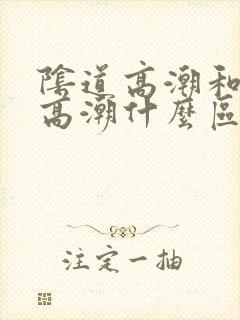 陰道高潮和
高潮什麼區
注定一抽